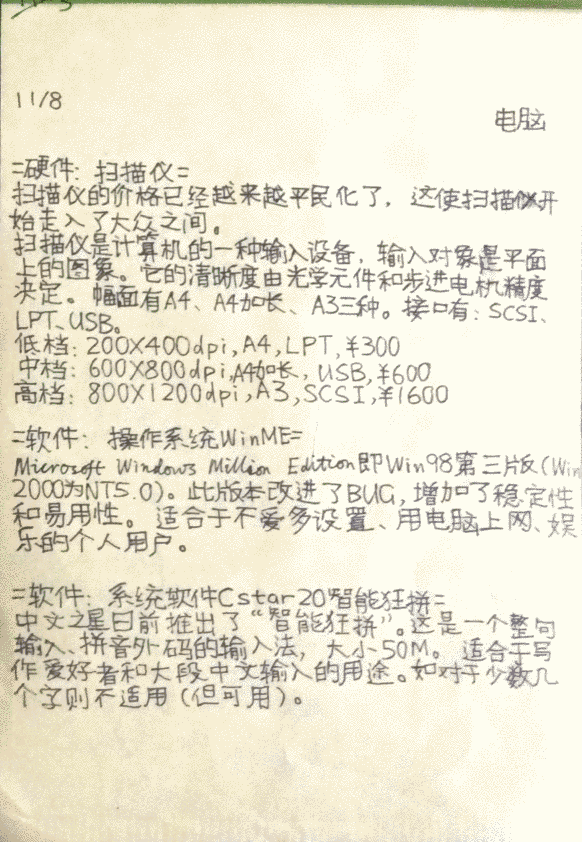 11/8
电脑
=硬件: 扫描仪=
扫描仪的价格已经越来越平民化了，这使扫描仪开
始走入了大众之间。
扫描仪是计算机的一种输入设备，输入对象是平面
上的图象。它的清晰度由光学元件和步进电机精度
决定。幅面有A4、A4加长、A3三种。接口有: SCSI、
LPT、USB。
低档: 200X400dpi, A4, LPT, ¥300
中档: 600X800dpi, A4加长, USB, ¥600
高档: 800X1200dpi, A3, SCSI, ¥1600
=软件: 操作系统WinME=
Microsoft Windows Million Edition即Win98第三版(Win
2000为NT5.0)。此版本改进了BUG, 增加了稳定性
和易用性。适合于不爱多设置、用电脑上网、娱
乐的个人用户。
=软件: 系统软件Cstar20智能狂拼=
中文之星日前推出了“智能狂拼”。这是一个整句
输入、拼音外码的输入法，大小50M。适合于写
作爱好者和大段中文输入的用途。如对于少数几
个字则不适用(但可用)。